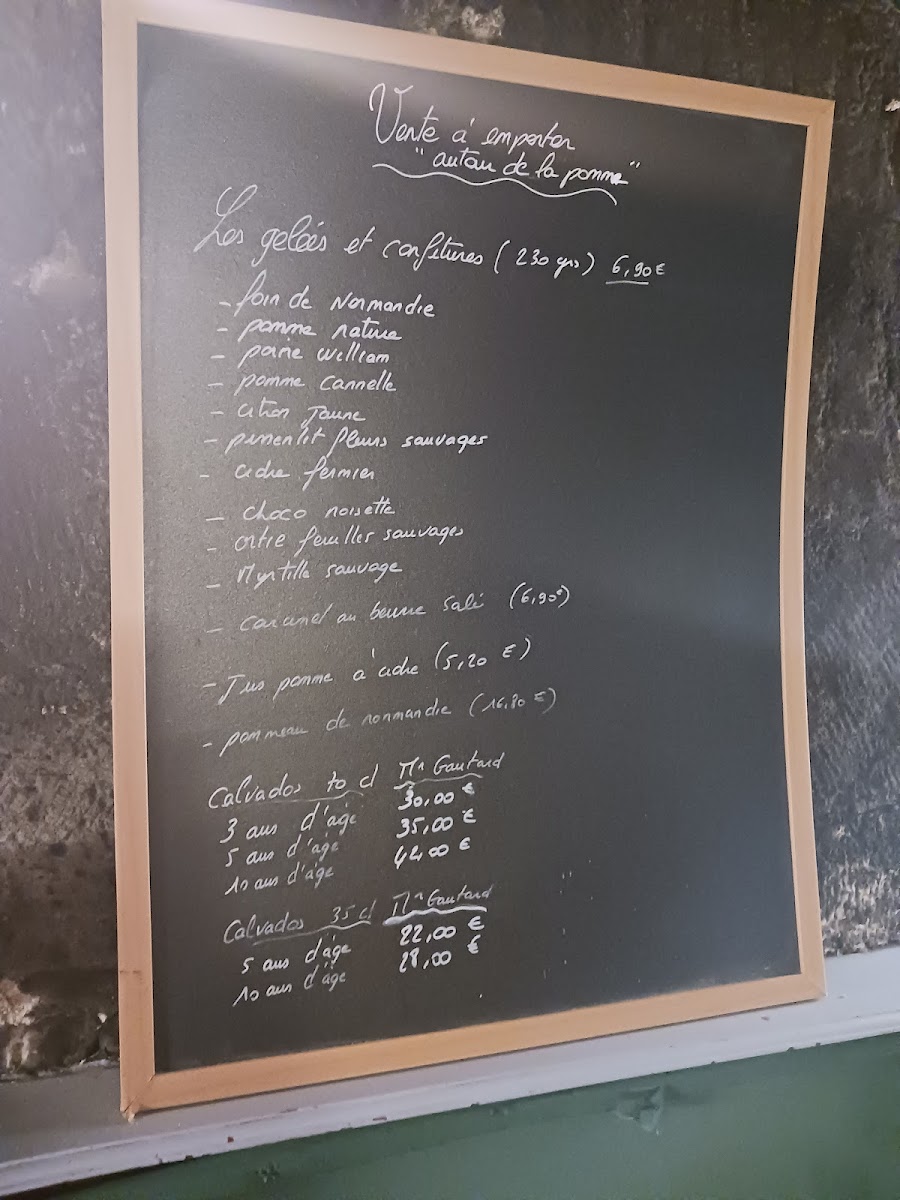 Vente à emporter
"autour de la pomme"
Les gelées et confitures (230 grs) 6,90 €
- foin de Normandie
- pomme nature
- poire william
- pomme cannelle
- citron jaune
- piment et fleurs sauvages
- cidre fermier
- choco noisette
- ortie feuilles sauvages
- Myrtille sauvage
- caramel au beurre salé (6,90€)
- Jus pomme à cidre (5,20 €)
- pommeau de normandie (16,80 €)
Calvados 70 cl Mr Gautard
3 ans d'âge 30,00 €
5 ans d'âge 35,00 €
10 ans d'âge 42,00 €
Calvados 35 cl Mr Gautard
5 ans d'âge 22,00 €
10 ans d'âge 28,00 €